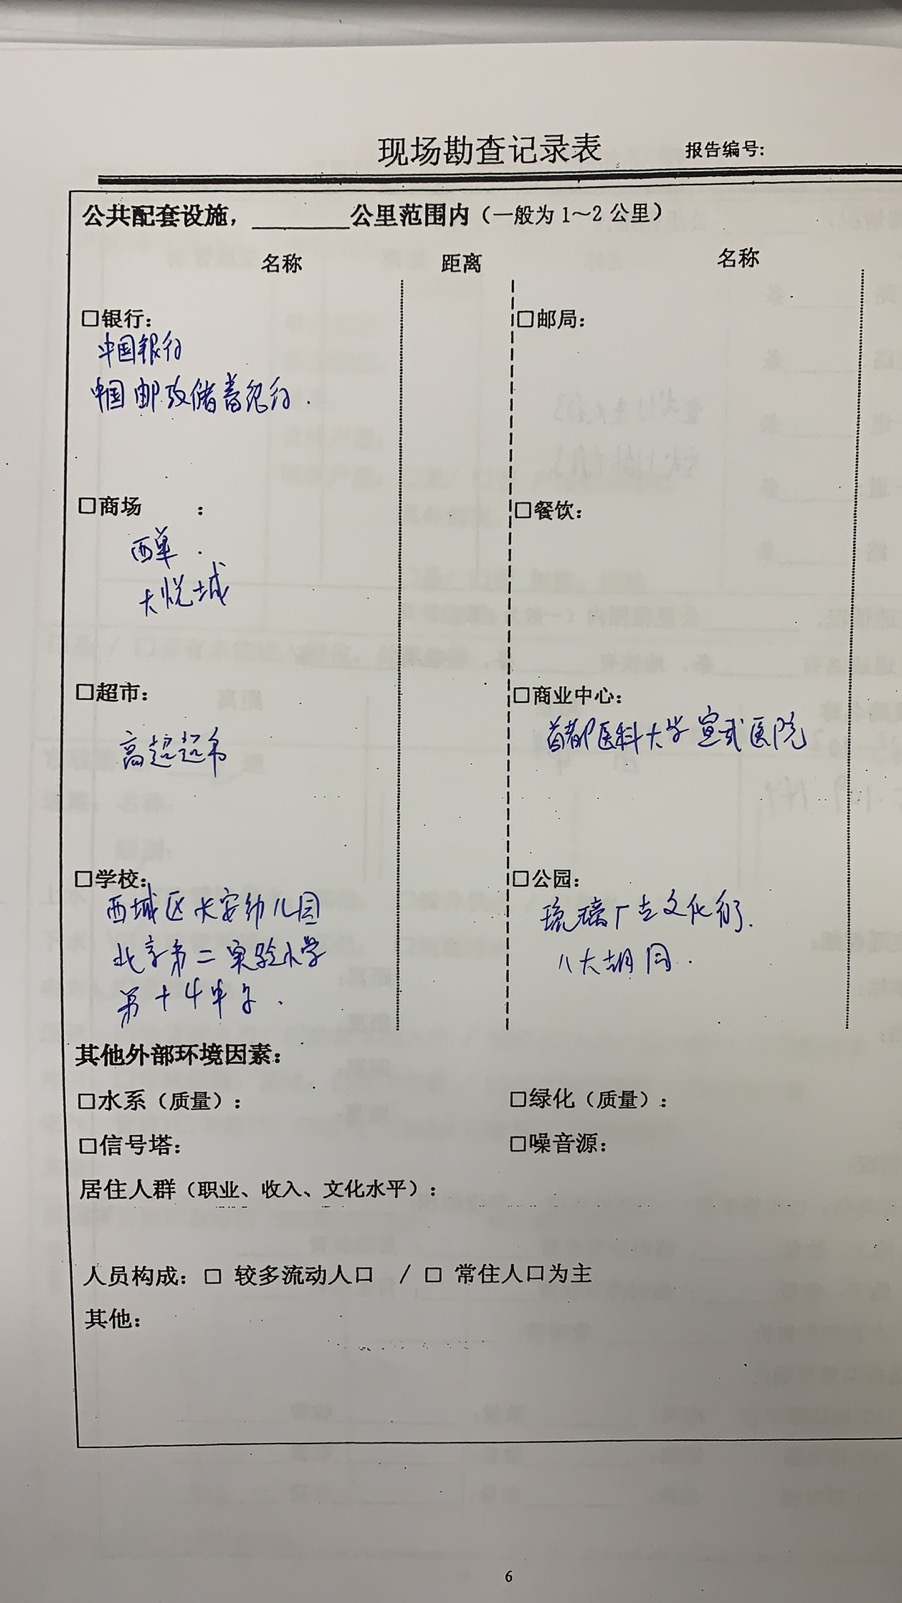 现场勘查记录表 报告编号:
公共配套设施,________公里范围内（一般为 1～2 公里）
名称 距离 名称
□银行: □邮局:
中国银行
中国邮政储蓄银行.
□商场 : □餐饮:
西单.
大悦城
□超市: □商业中心:
高超超市 首都医科大学宣武医院
□学校: □公园:
西城区长安幼儿园 琉璃厂古文化街.
北京第二实验小学 八大胡同.
第十四中学.
其他外部环境因素:
□水系（质量）: □绿化（质量）:
□信号塔: □噪音源:
居住人群（职业、收入、文化水平）:
人员构成: □ 较多流动人口 / □ 常住人口为主
其他:
6